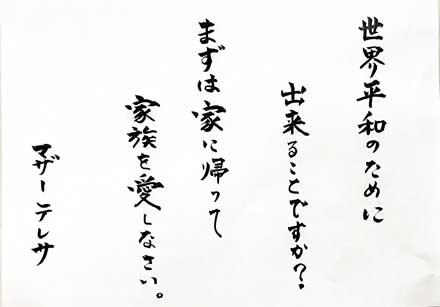 世界平和のために
出来ることですか?
まずは家に帰って
家族を愛しなさい。
マザーテレサ